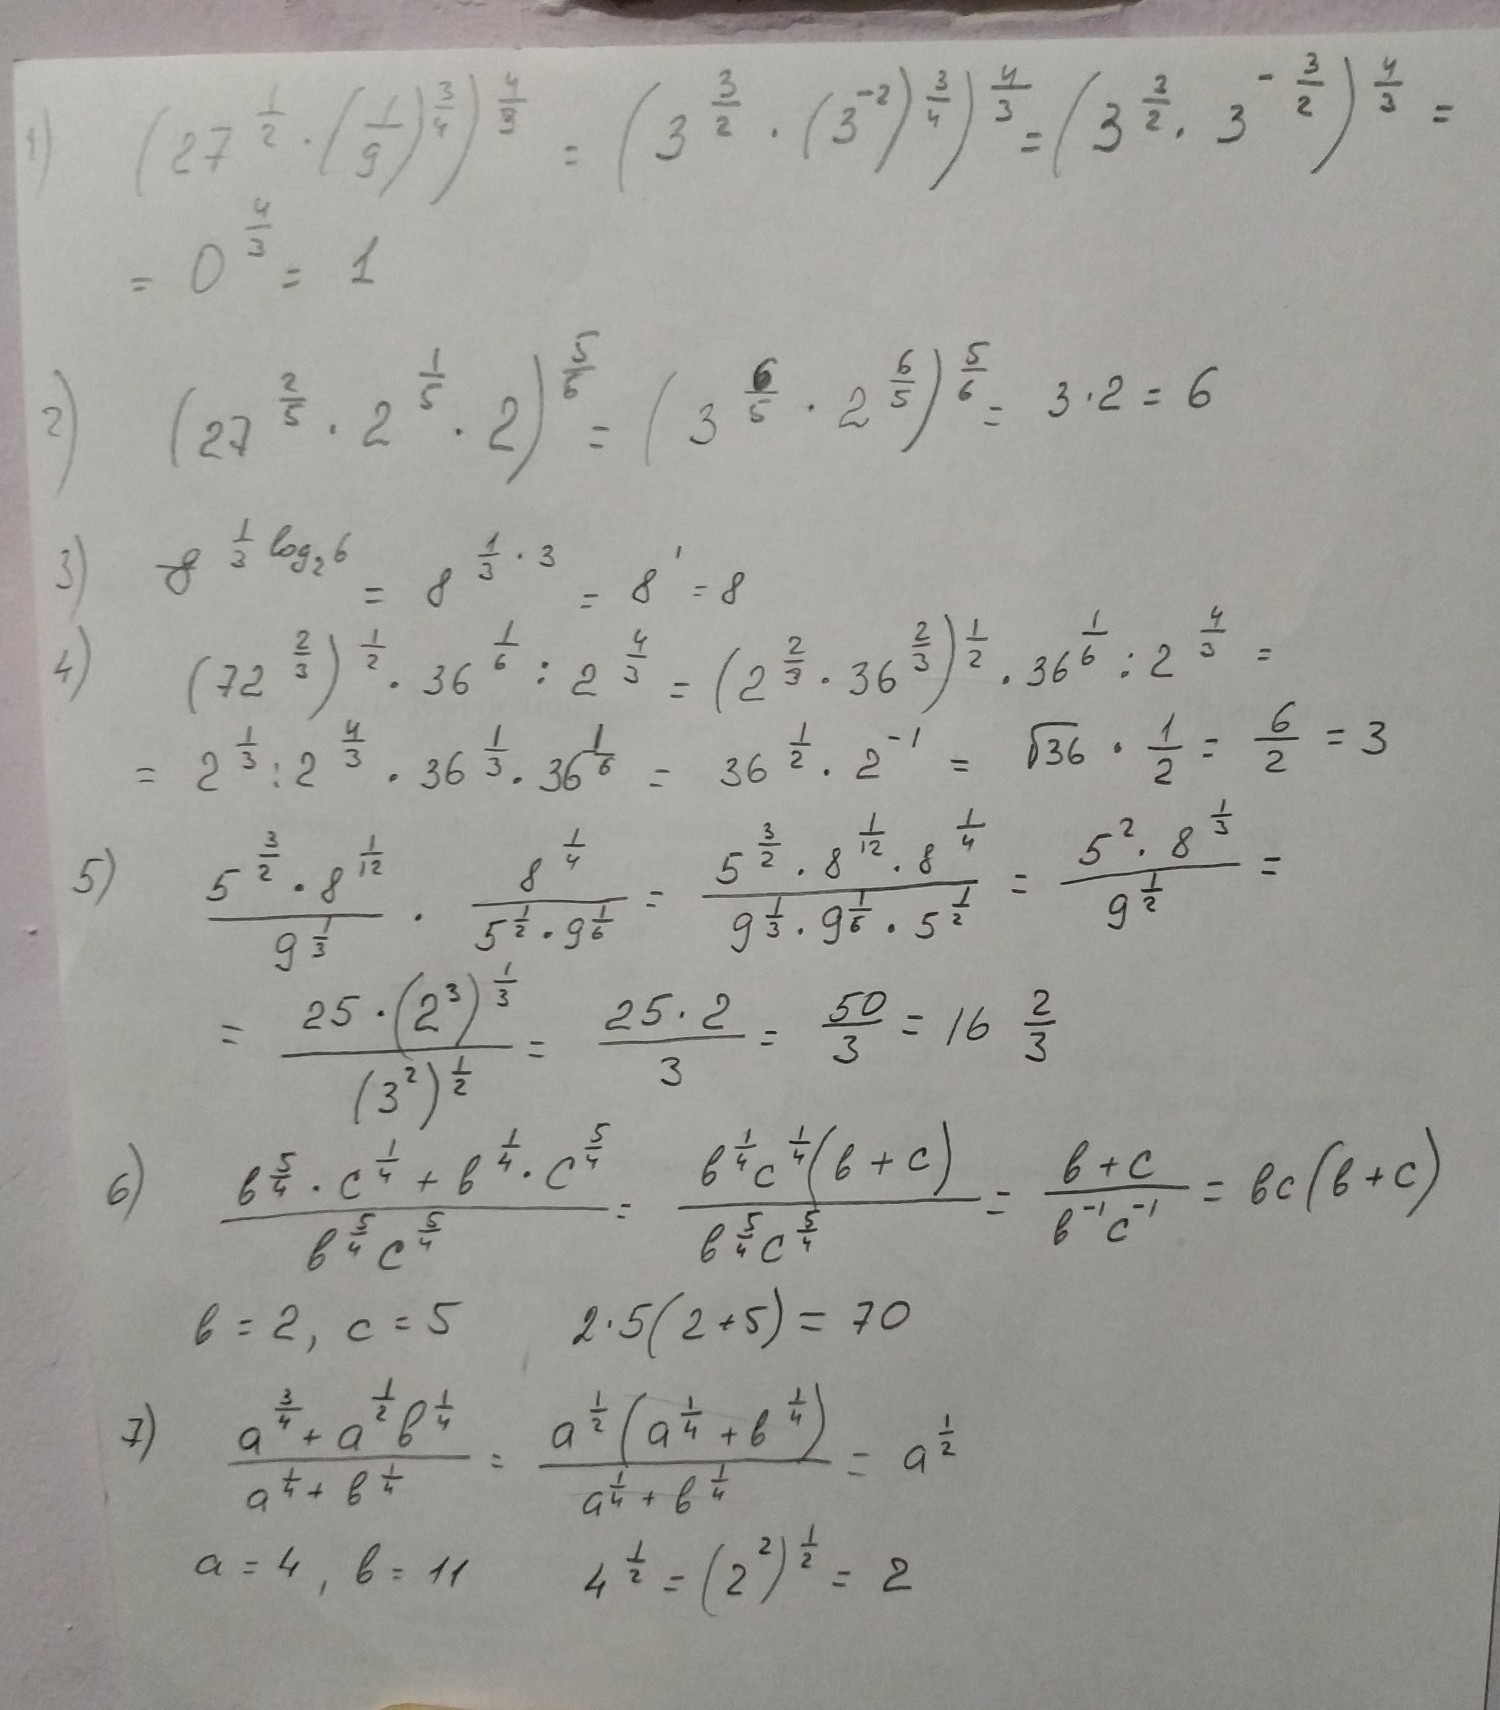 1) (27^(1/2) · (1/9)^(3/4))^(4/3) = (3^(3/2) · (3^(-2))^(3/4))^(4/3) = (3^(3/2) · 3^(-3/2))^(4/3) =
= 0^(4/3) = 1
2) (27^(2/5) · 2^(1/5) · 2)^(5/6) = (3^(6/5) · 2^(6/5))^(5/6) = 3·2 = 6
3) 8^(1/3 log₂6) = 8^(1/3 · 3) = 8^1 = 8
4) (72^(2/3))^(1/2) · 36^(1/6) : 2^(4/3) = (2^(2/3) · 36^(2/3))^(1/2) · 36^(1/6) : 2^(4/3) =
= 2^(1/3) : 2^(4/3) · 36^(1/3) · 36^(1/6) = 36^(1/2) · 2^(-1) = √36 · 1/2 = 6/2 = 3
5) (5^(3/2) · 8^(1/12))/(9^(1/3)) · (8^(1/4))/(5^(1/2) · 9^(1/6)) = (5^(3/2) · 8^(1/12) · 8^(1/4))/(9^(1/3) · 9^(1/6) · 5^(1/2)) = (5² · 8^(1/3))/(9^(1/2)) =
= (25 · (2³)^(1/3))/((3²)^(1/2)) = (25 · 2)/3 = 50/3 = 16 2/3
6) (в^(5/4) · с^(1/4) + в^(1/4) · с^(5/4))/(в^(5/4) с^(5/4)) = (в^(1/4) с^(1/4) (в + с))/(в^(5/4) с^(5/4)) = (в + с)/(в^(-1) с^(-1)) = вс(в + с)
в = 2, с = 5 2·5(2+5) = 70
7) (а^(3/4) + а^(1/2) в^(1/4))/(а^(1/4) + в^(1/4)) = (а^(1/2) (а^(1/4) + в^(1/4)))/(а^(1/4) + в^(1/4)) = а^(1/2)
а = 4, в = 11 4^(1/2) = (2²)^(1/2) = 2